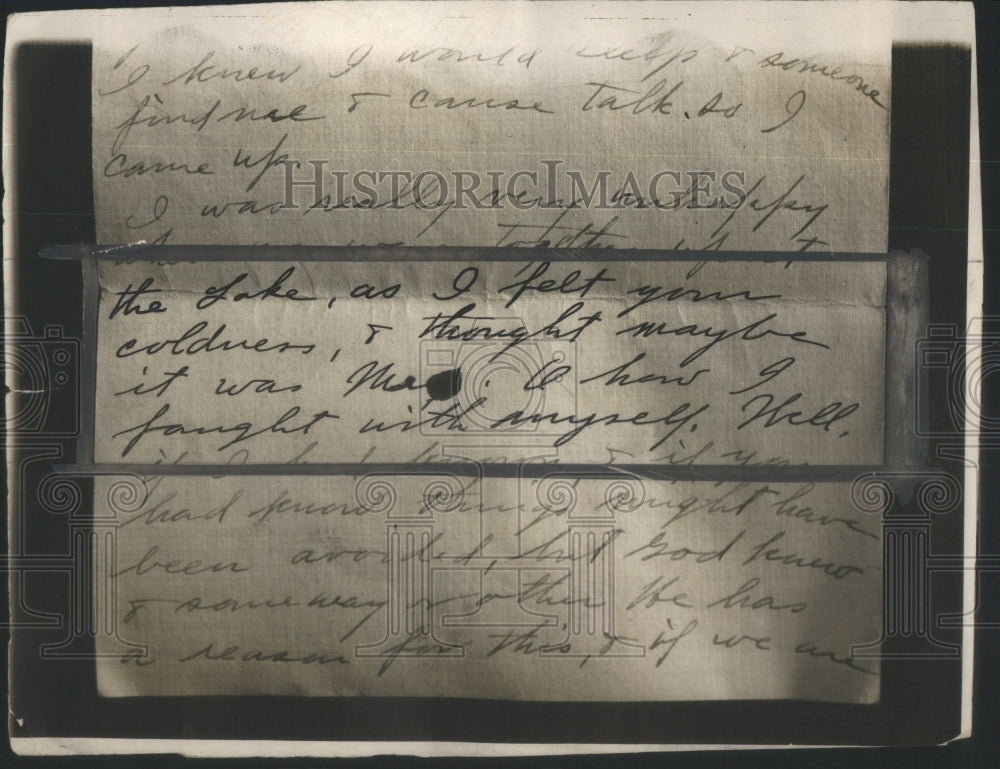 I knew I would weep & someone
find me & cause talk. so I
came up.
I was really very unhappy
when we were together up at
the Lake, as I felt your
coldness, & thought maybe
it was . O how I
faught with myself. Well,
if I had known & if you
had know things might have
been avoided, but God knew
& someway or other He has
a reason for this, & if we are
HISTORICIMAGES